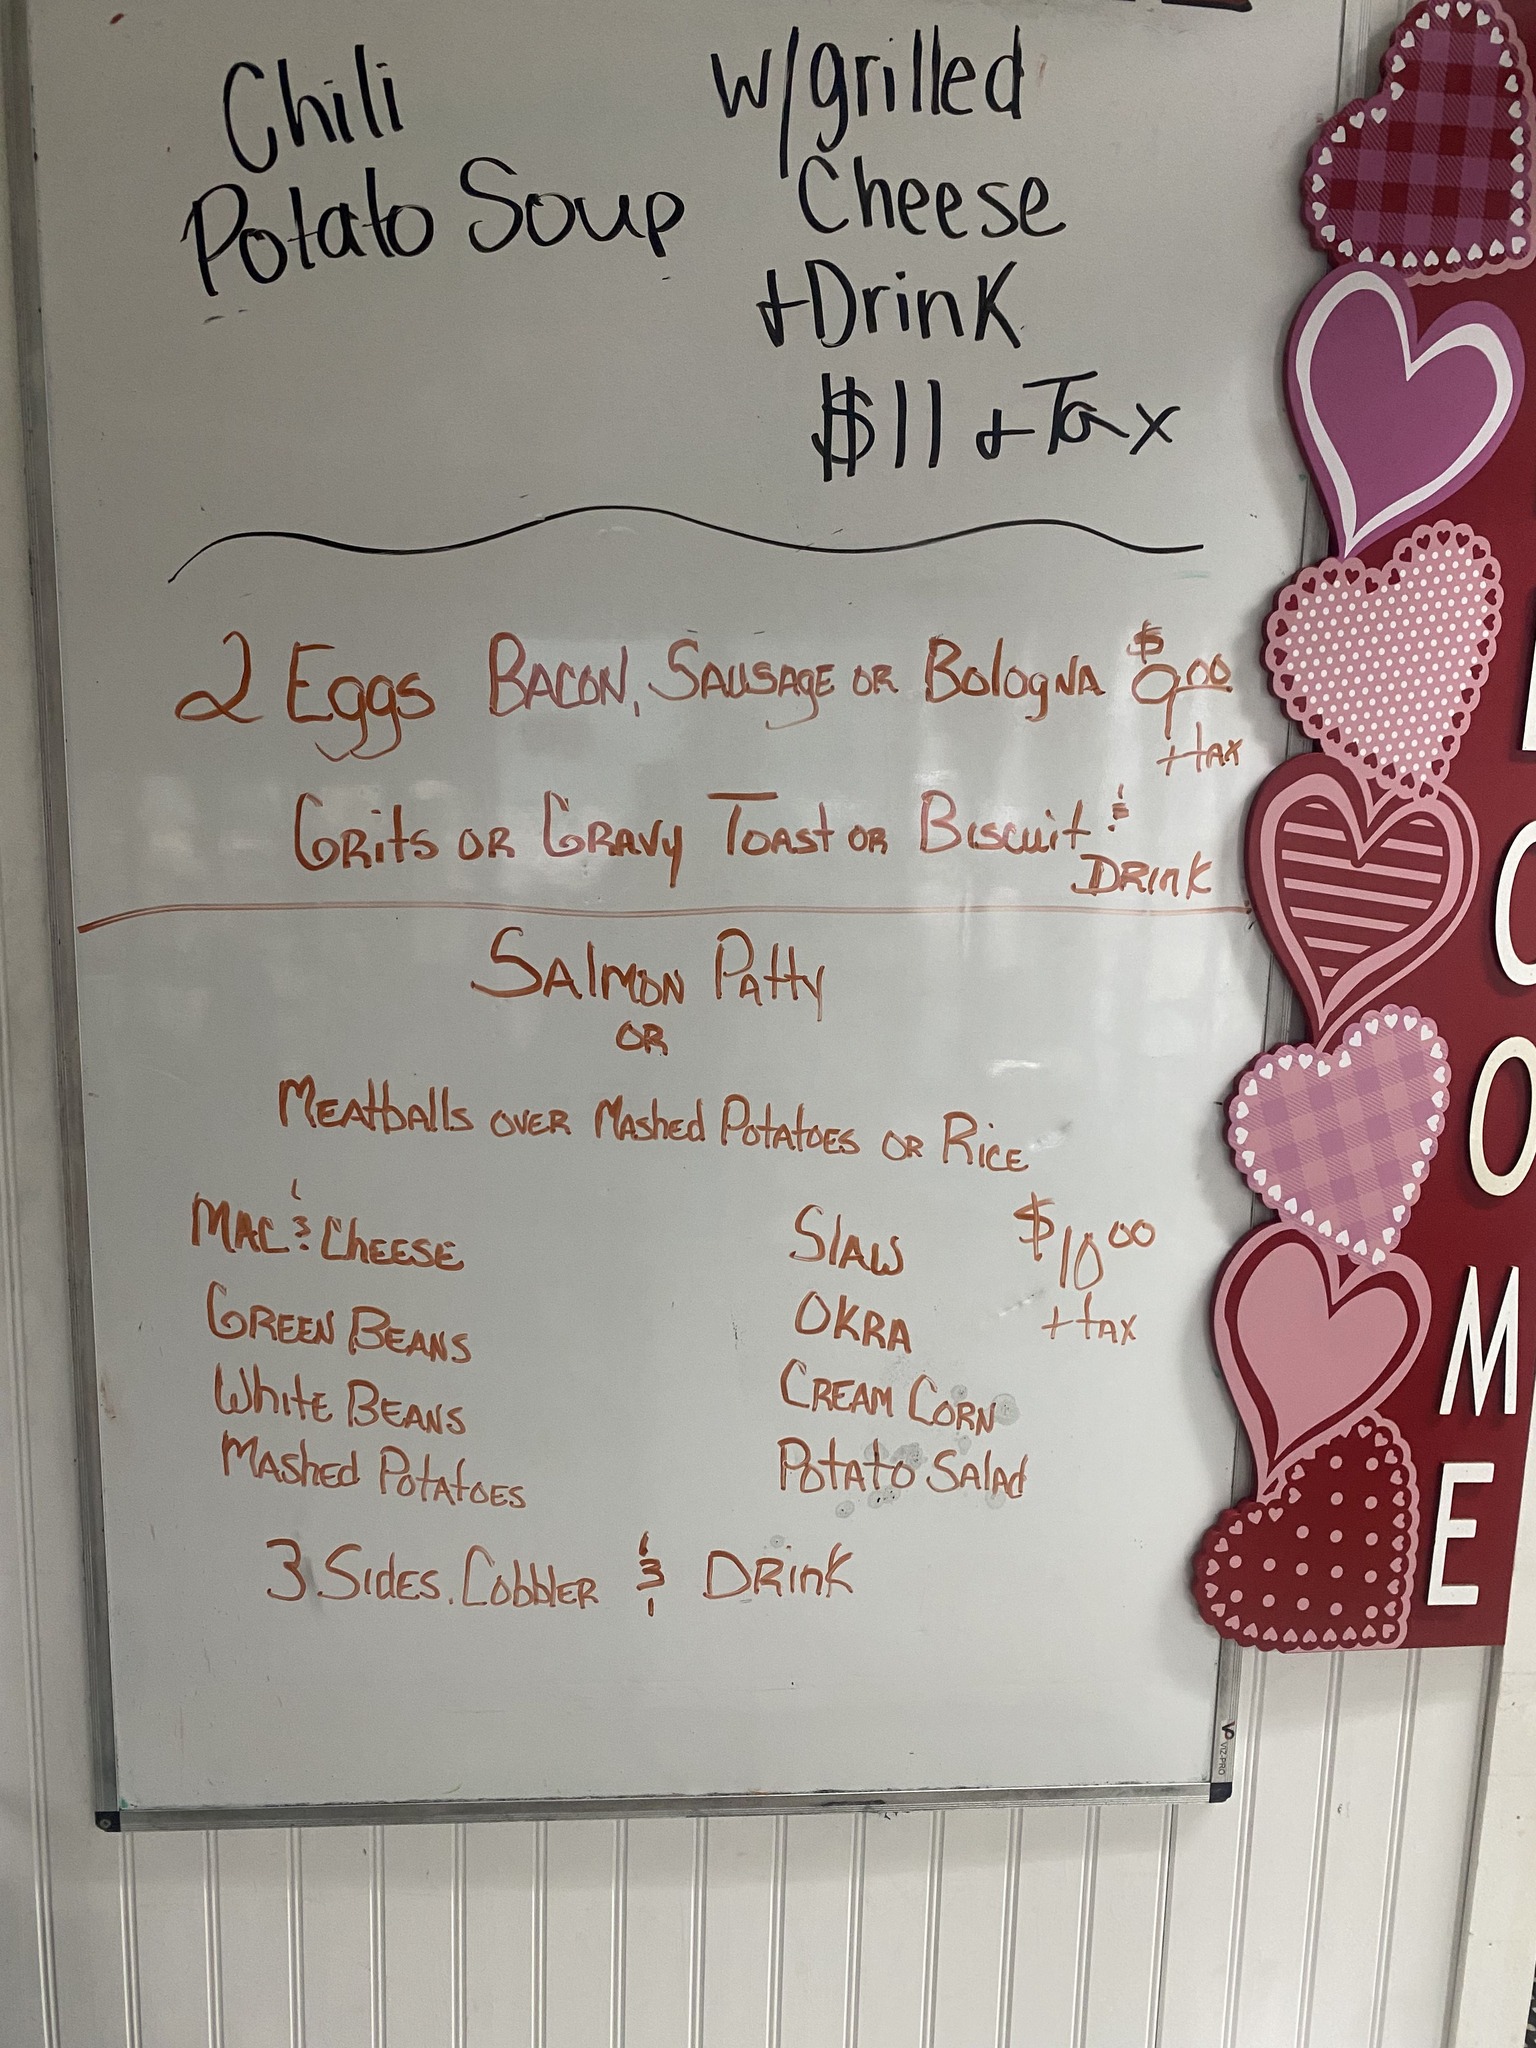 Chili w/grilled
Potato Soup Cheese
+Drink
$11 + Tax
2 Eggs Bacon, Sausage or Bologna $9.00
+tax
Grits or Gravy Toast or Biscuit &
Drink
Salmon Patty
or
Meatballs over Mashed Potatoes or Rice
Mac & Cheese Slaw $10.00
Green Beans Okra +tax
White Beans Cream Corn
Mashed Potatoes Potato Salad
3 Sides. Cobbler & Drink
COME
VIZ-PRO